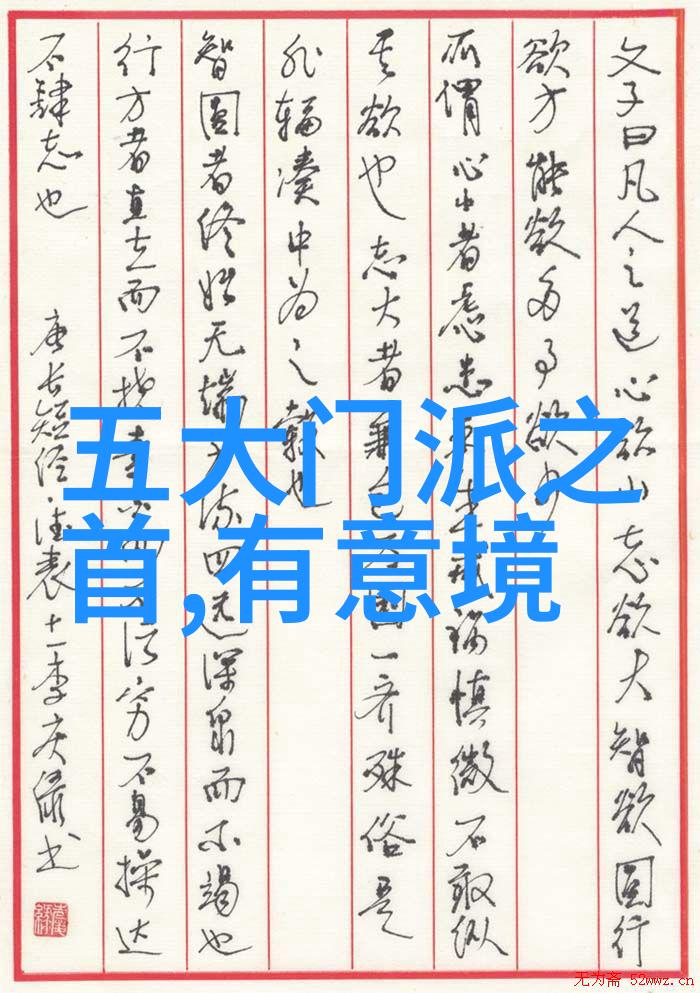 文子曰凡人之道心欲小志欲大智欲圆行
欲方能欲多事欲少
所谓心小者虑患未生戒祸慎微不敢纵
其欲也志大者兼包万国一齐殊俗是
非辐凑中为之毂也
智圆者终始无端方流四远深泉而不竭也
行方者直立而不挠素白而不污穷不易操达
不肆志也
唐长短经·德表十一李庆绿书
五大门派之
首,有意境
无为斋 52wwz.cn